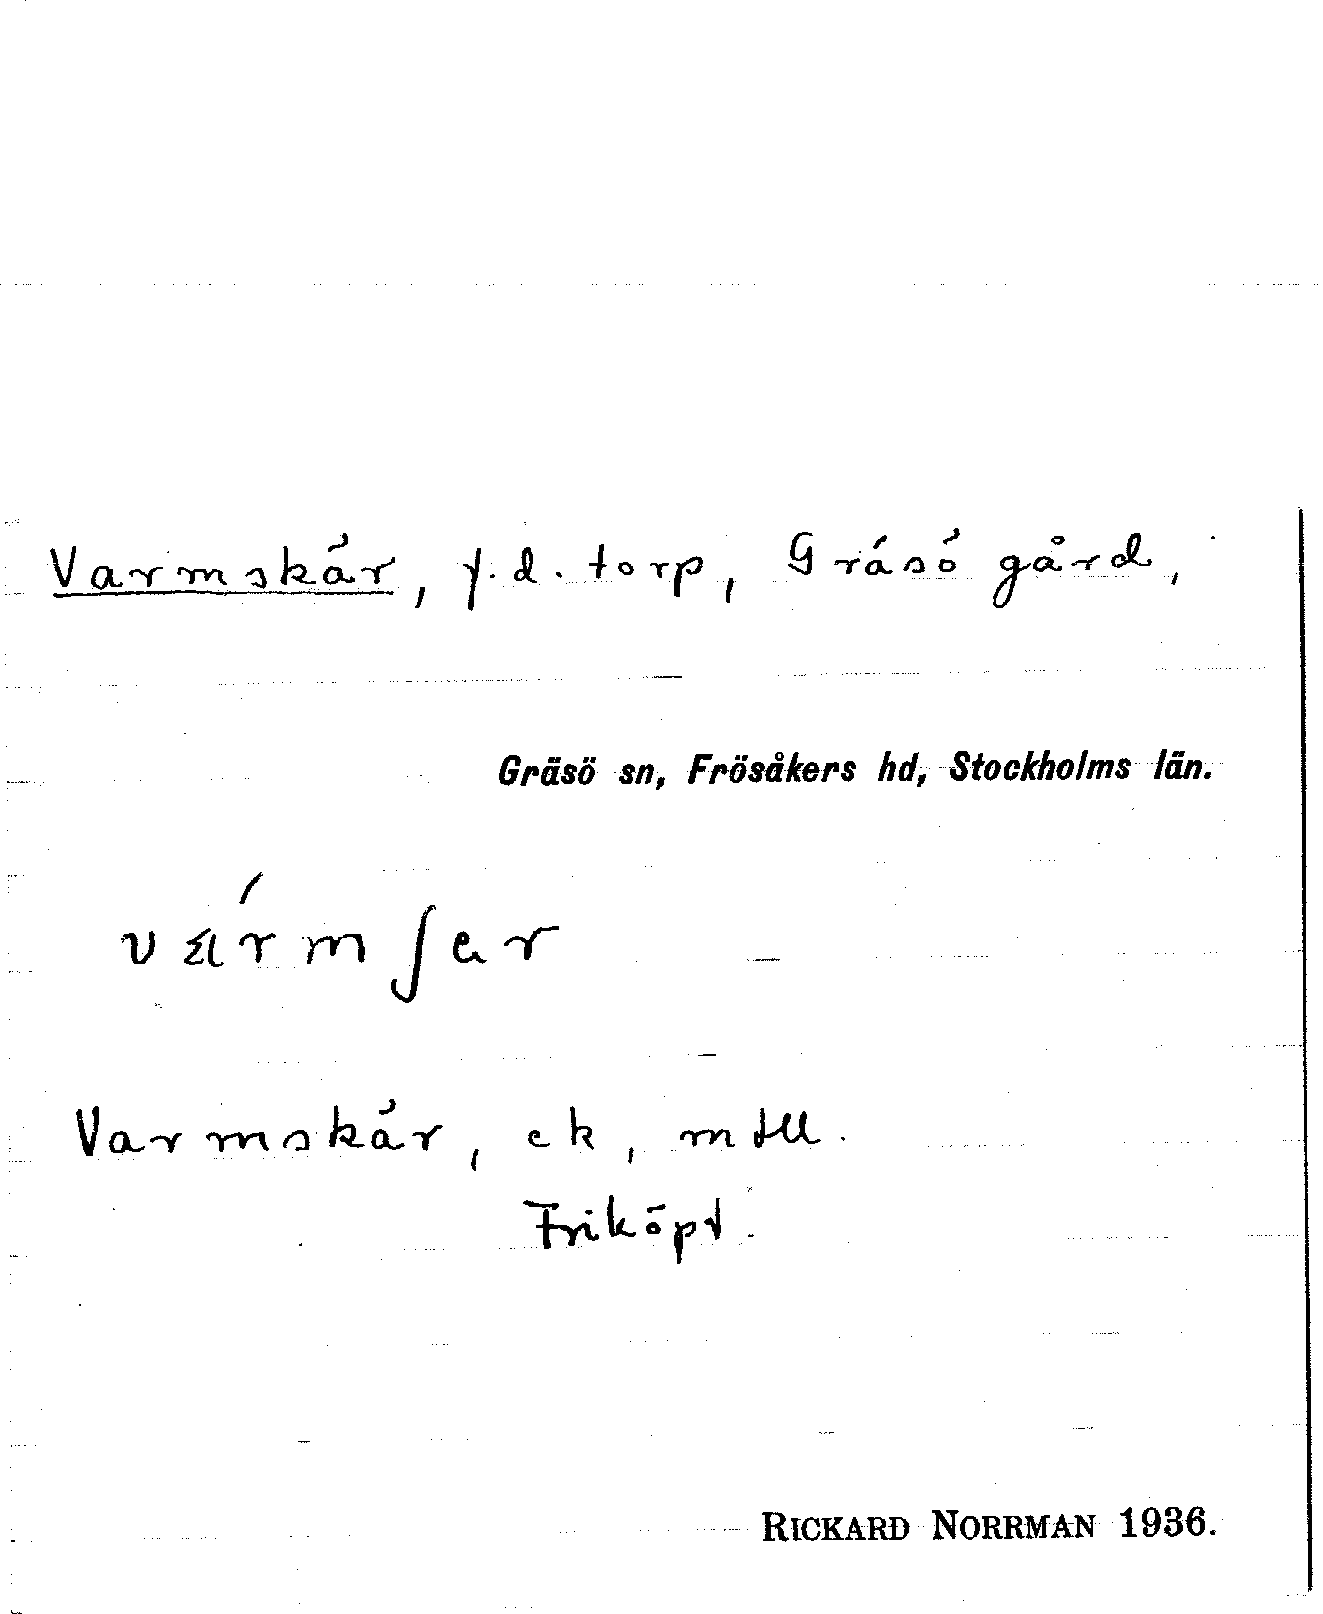 Varmskär, f.d. torp, Gräsö gård,
Gräsö sn, Frösåkers hd, Stockholms län.
Varmskär, ek, mtll.
Friköpt.
RICKARD NORRMAN 1936.